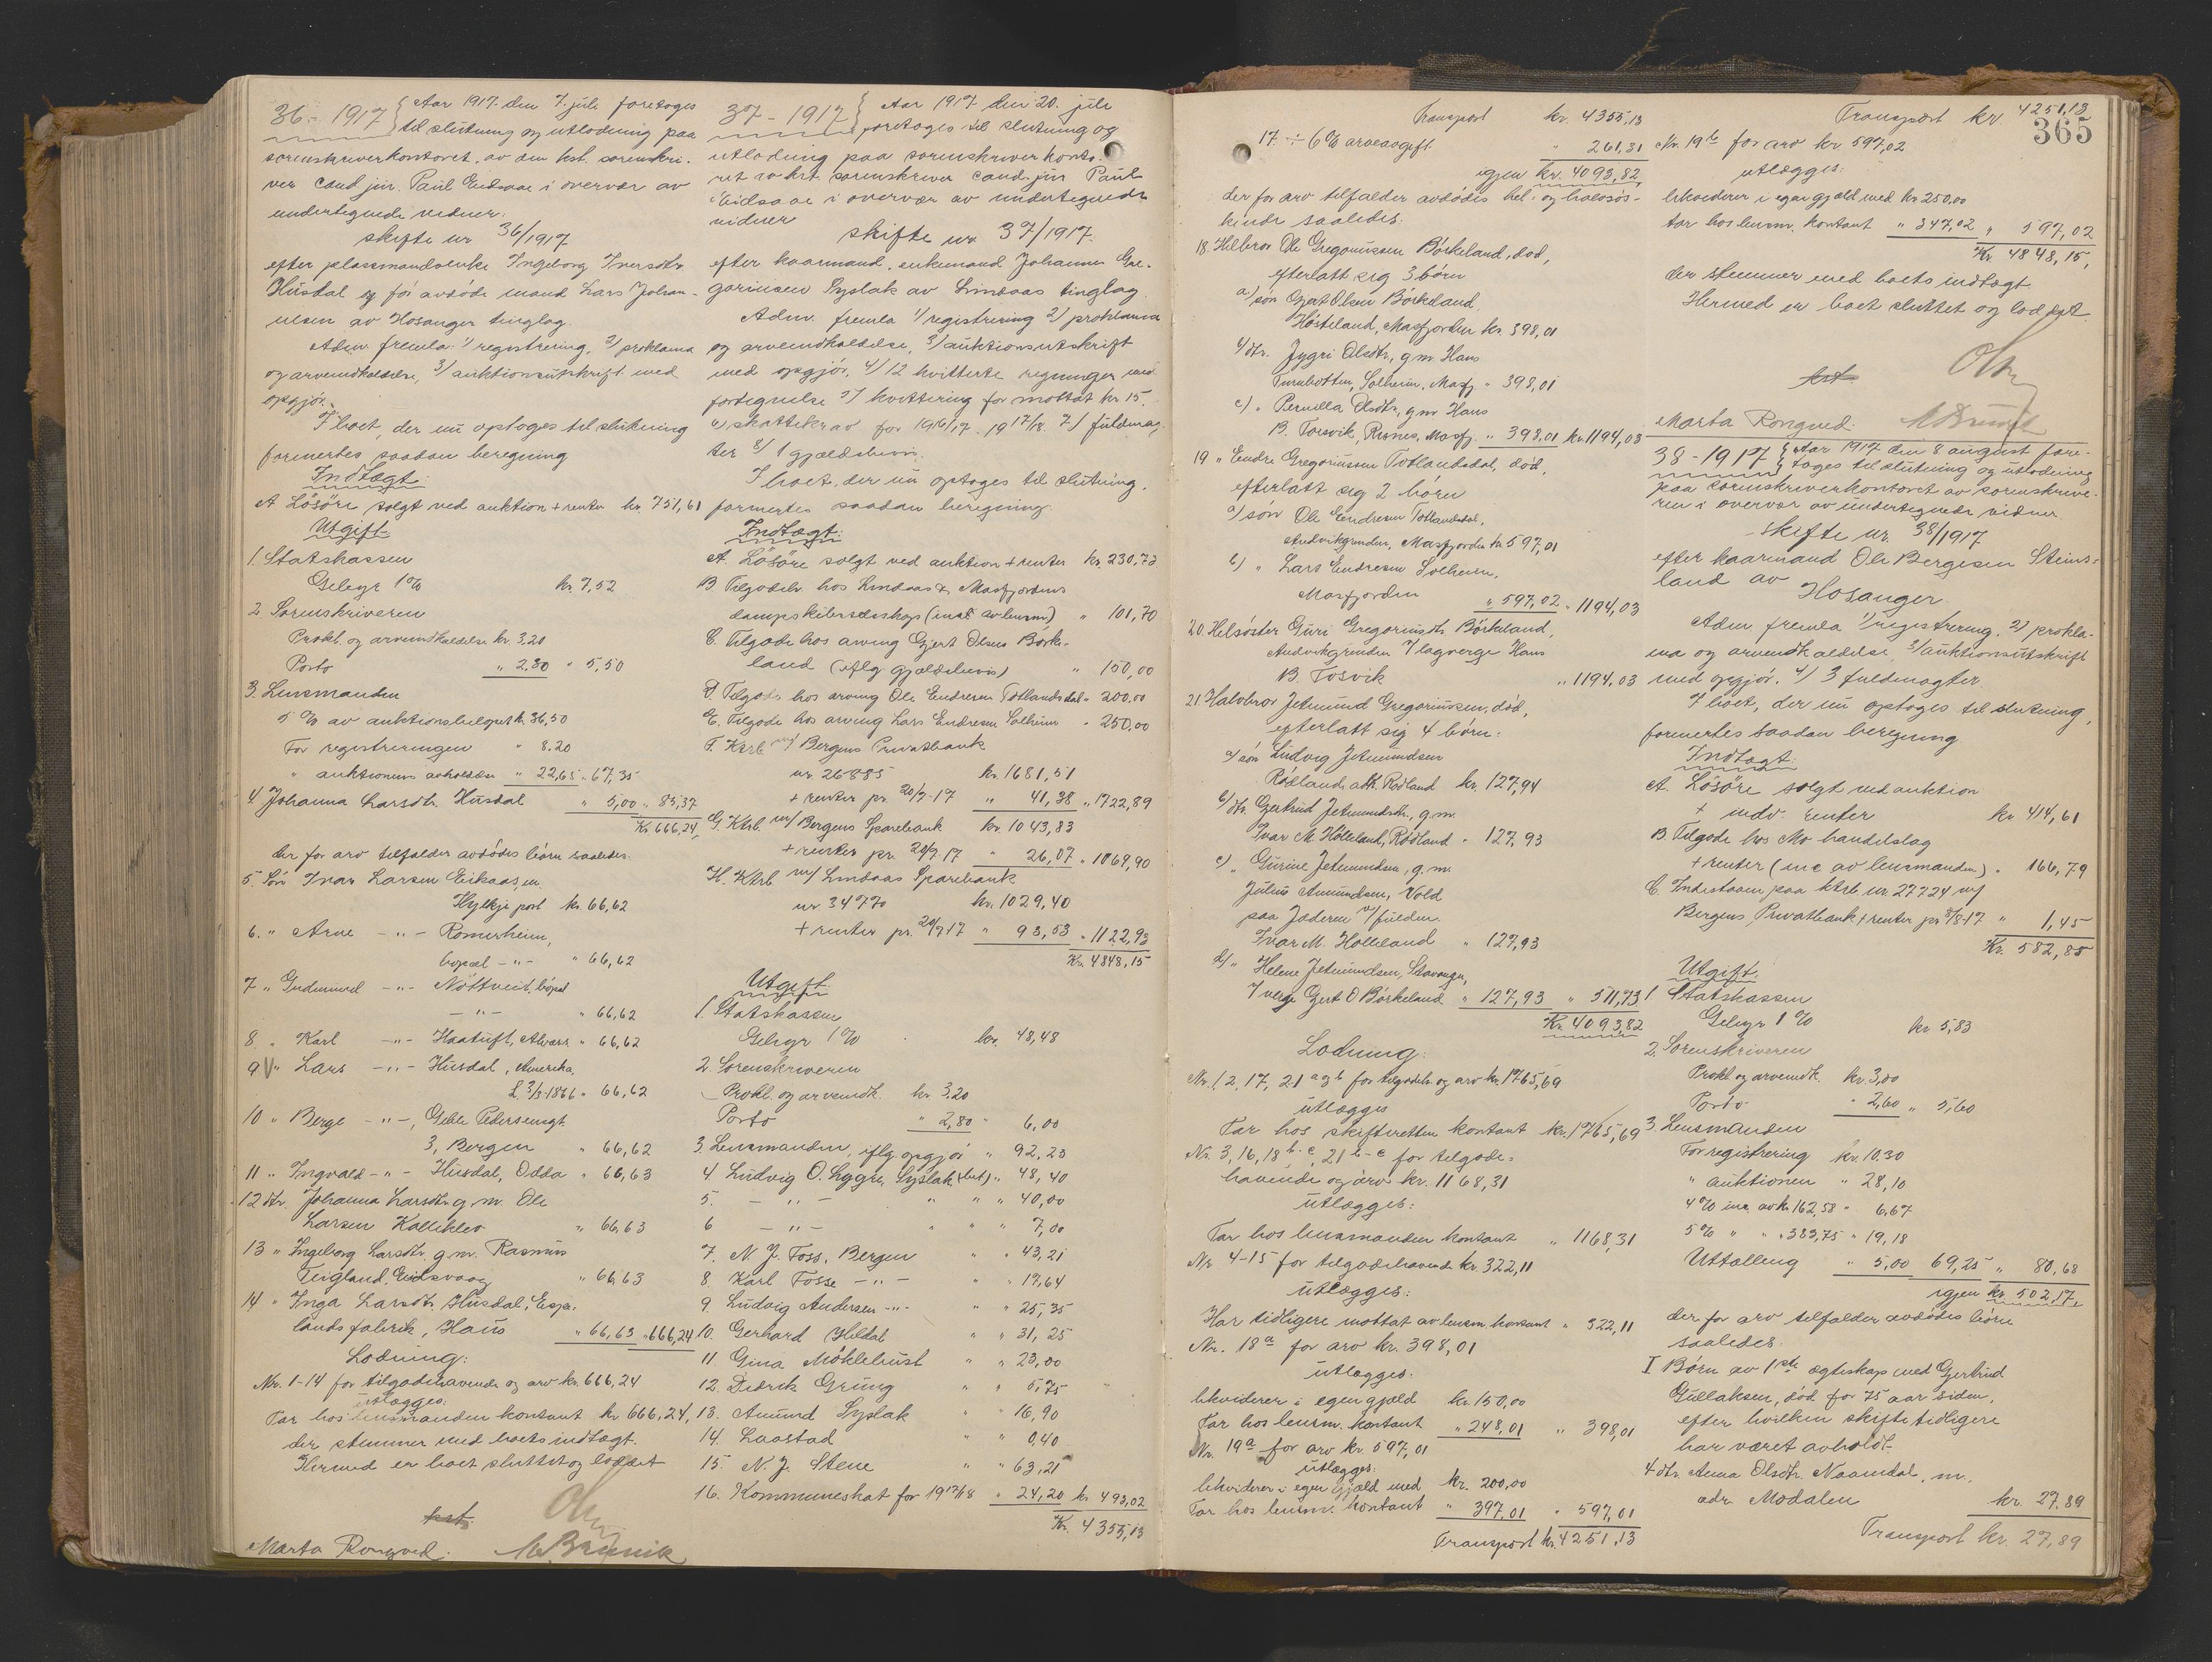 36. - 1917 { Aar 1917 den 7. juli foretoges
til slutning og utlodning paa
sorenskriverkontoret, av den kst. sorenskri-
ver cand jur. Paul Eidsaae i overvær av
undertegnede vidner:
skifte nr 36/1917
efter plassmandsenke Ingeborg Iversdtr.
Husdal og før avdøde mand Lars Johan-
nesen av Hosanger tinglag.
Adm. fremla: 1/ registrering, 2/ proklama
og arveindkaldelse, 3/ auktionsutskrift med
opgjør.
I boet, der nu optoges til slutning
formertes saadan beregning
Indtægt:
A Løsøre solgt ved auktion + renter kr. 751,61
Utgift
1. Statskassen
Gebyr 1 % kr. 7,52
2. Sorenskriveren
Prokl. og arveindkaldelse kr. 3,20
Porto " 2,30 " 5,50
3. Lensmanden
5 % av auktionsbeløpet kr. 36,50
For registreringen " 8.20
" auktionens avholdelse " 22,65 " 67,35
4. Johanna Larsdtr. Husdal " 5,00 " 85,37
Kr. 666,24,
der for arv tilfalder avdødes børn saaledes:
5. Søn Ivar Larsen Eikaas, m.
Hylkje post kr. 66,62
6. " Arne - " - Romerheim,
bopæl - " - " 66,62
7 " Gudmund - " - Nøttveit, bopæl
- " - " 66,62
8 " Karl - " - Haatuft, Alvær. " 66,62
9 " Lars - " - Husdal, Amerika,
f. 3/3 1866 " 66,62
10 " Berge - " -, Geble Pedersensgt.
3, Bergen " 66,62
11 " Ingvald - " - Husdal, Odda " 66,63
12 dtr. Johanna Larsdtr. g. m. Ole
Larsen Kalleklev " 66,63
13 " Ingeborg Larsdtr. g. m. Rasmus
Teigland, Eidsvaag " 66,63
14 " Inga Larsdtr. Husdal, Espe-
lands fabrik, Haus " 66,63 " 666,24
Lodning:
Nr. 1-14 for tilgodehavende og arv kr. 666,24
utlægges:
Tar hos lensmanden kontant kr. 666,24,
der stemmer med boets indtægt.
Hermed er boet sluttet og loddet
kst.
Marta Rongved.
37 - 1917 { Aar 1917 den 20. juli
foretoges til slutning og
utlodning paa sorenskriverkonto-
ret av kst. sorenskriver cand. jur Paul
Eidsaae i overvær av undertegnede
vidner
skifte nr. 37/1917.
efter kaarmand, enkemand Johannes Gre-
goriusen Syslak av Lindaas tinglag
Adm. fremla 1/ registrering 2/ proklama
og arveindkaldelse, 3/ auktionsutskrift
med opgjør, 4/ 12 kvitterte regninger med
fortegnelse 5/ kvittering for mottat kr 15.
6/ skattekrav for 1916/17 - 1917/18. 7/ fuldmag-
ter 8/ 1 gjældsbevis.
I boet, der nu optoges til slutning,
formertes saadan beregning:
Indtægt:
A. Løsøre solgt ved auktion + renter kr. 230,73
B Tilgodeh. hos Lindaas & Masfjordens
dampskibsselskap (inds. av lensm) " 101,70
C. Tilgode hos arving Gjert Olsen Børke-
land (iflg gjældsbevis) " 150,00
D Tilgode hos arving Ole Endresen Totlandsdal " 200.00
E. Tilgode hos arving Lars Endresen Solheim " 250,00
F. Ktrb m/ Bergens Privatbank
nr. 26885 kr. 1681,51
+ renter pr. 20/7-17 " 41,38 " 1722,89
G. Ktrb. m/ Bergens Sparebank kr. 1043,83
+ renter pr. 20/7 17 " 26,07 " 1069,90
H. Ktrb m/ Lindaas Sparebank
nr 34770 kr. 1029,40
+ renter pr. 20/7 17 " 93,53 " 1122,93
Kr. 4848,15
Utgift
1. Statskassen
Gebyr 1 % kr. 48,48
2. Sorenskriveren
Prokl. og arveindk. kr. 3,20
Porto " 2,80 " 6,00
3. Lensmanden, iflg. opgjør " 92,23
4. Ludvig O. Lygre, Syslak " 48,40
5. - " - " " 40,00
6 - " - " " 7,00
7. N. J. Foss, Bergen " " 43,21
8. Karl Fosse - " - " " 19,64
9. Ludvig Andersen - " - " " 25,35
10. Gerhard Hildal " " 31,25
11. Gina Møklebust " " 23,00
12. Didrik Grung " " 5,75
13. Amund Syslak " " 16,90
14. Laastad " " 0,40
15. N. J. Stene " " 63,21
16. Kommuneskat for 1917/18 " 24,20 kr 493,02
Kr. 4355,13
Transport kr. 4355,13
17. ÷ 6 % arveavgift. " 261,31
igjen kr. 4093,82,
der for arv tilfalder avdødes hel- og halvsøs-
kende saaledes:
18. Helbror Ole Gregoriussen Børkeland, død,
efterlatt sig 3 børn
a) søn Gjert Olsen Børkeland,
Høsteland, Masfjorden kr. 398,01
b) dtr. Jygri Olsdtr., g m Hans
Furebotten, Solheim, Masfj. " 398,01
c) " Pernilla Olsdtr, g m Hans
B. Tosvik, Risnes, Masfj. " 398,01 kr. 1194,03
19 " Endre Gregoriussen Totlandsdal, død,
efterlatt sig 2 børn
a) søn Ole Endresen Totlandsdal,
Andvikgrenden, Masfjorden kr. 597,01
b) " Lars Endresen Solheim,
Masfjorden " 597,02 " 1194,03
20. Helsøster Guri Gregoriusdtr. Børkeland,
Andvikgrenden v/ lagverge Hans
B. Tosvik " 1194,03
21. Halvbror Jetmund Gregoriussen, død,
efterlatt sig 4 børn:
a) søn Ludvig Jetmundsen
Rødland, adr. Rødland kr. 127,94
b) dtr. Gertrud Jetmundsdtr., g. m.
Ivar M. Hølleland, Rødland " 127,93
c) " Gurine Jetmundsen, g. m.
Julius Amundsen, Vold
paa Jæderen v/ fuldm.
Ivar M. Holleland " 127,93
d) " Helene Jetmundsen, Stavanger,
v/ verge Gert O Børkeland " 127,93 " 511,73
Kr. 4093,82
Lodning:
Nr. 1, 2, 17, 21 a og b for tilgodeh. og arv kr. 1765,69
utlægges
Tar hos skifteretten kontant kr. 1765,69
Nr. 3, 16, 18 b-c, 21 b-c for tilgode-
havende og arv kr. 1168,31
utlægges:
Tar hos lensmanden kontant " 1168,31
Nr 4-15 for tilgodehavende kr. 322,11
utlægges:
Har tidligere mottat av lensm. kontant " 322,11
Nr. 18 a for arv kr. 398,01
utlægges:
likviderer i egen gjæld kr. 150,00
Tar hos lensm. kontant " 248,01 " 398,01
Nr. 19 a for arv kr. 597,01
utlægges:
likviderer i egen gjæld med kr. 200,00
Tar hos lensm. kontant " 397,01 " 597,01
Transport kr. 4251.13
Transport kr 4251,13
365
Nr. 19 b for arv kr. 597,02
utlægges:
likviderer i egen gjæld med kr 250,00
tar hos lensm. kontant " 347,02 " 597,02
Kr. 4848,15,
der stemmer med boets indtægt
Hermed er boet sluttet og loddet
kst
Marta Rongved.
38 - 1917 { Aar 1917 den 8 august fore-
toges til slutning og utlodning
paa sorenskriverkontoret av sorenskrive-
ren i overvær av undertegnede vidner
skifte nr. 38/1917
efter kaarmand Ole Bergesen Steins-
land av Hosanger
Adm fremla 1/ registrering, 2/ prokla-
ma og arveindkaldelse 3/ auktionsutskrift
med opgjør. 4/ 3 fuldmagter
I boet, der nu optoges til slutning,
formertes saadan beregning
Indtægt:
A. Løsøre solgt ved auktion
+ indv. renter kr 414,61
B Tilgode hos Mo handelslag
+ renter (inc av lensmanden) " 166,79
C. Indestaaen paa ktrb. nr. 27724 m/
Bergens Privatbank + renter pr 8/8-17 " 1,45
Kr. 582,85
Utgift:
1 Statskassen
Gebyr 1 % kr 5,83
2. Sorenskriveren
Prokl. og arveindk. kr. 3,00
Porto " 2,60 " 5,60
3. Lensmanden
For registrering kr. 10.30
" auktionen " 28,10
4 % inc. av kr. 162,58 " 6,67
5 % " " " 383,75 " 19,18
Uttælling " 5,00 69,25 " 80,68
igjen kr. 502,17,
der for arv tilfalder avdødes børn
saaledes:
I Børn av 1ste egteskap med Gjertrud
Gullaksen, død for 75 aar siden,
efter hvilken skifte tidligere
har været avholdt
4 dtr. Anna Olsdtr. Naamdal, m.,
adr. Modalen kr. 27.89
Transport kr. 27,89